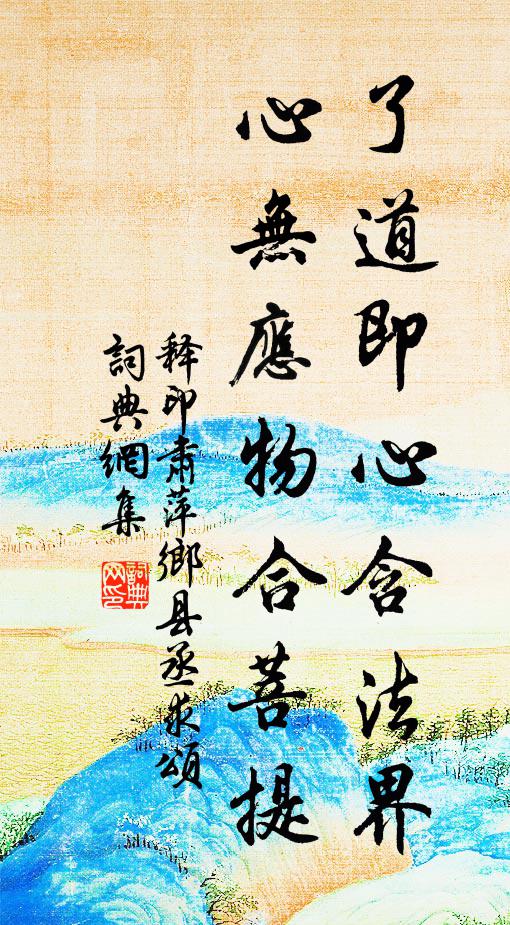 了道即心含法界
心無應物合菩提
释印肅萍鄉县丞求頌
詞典網集
詞典网印